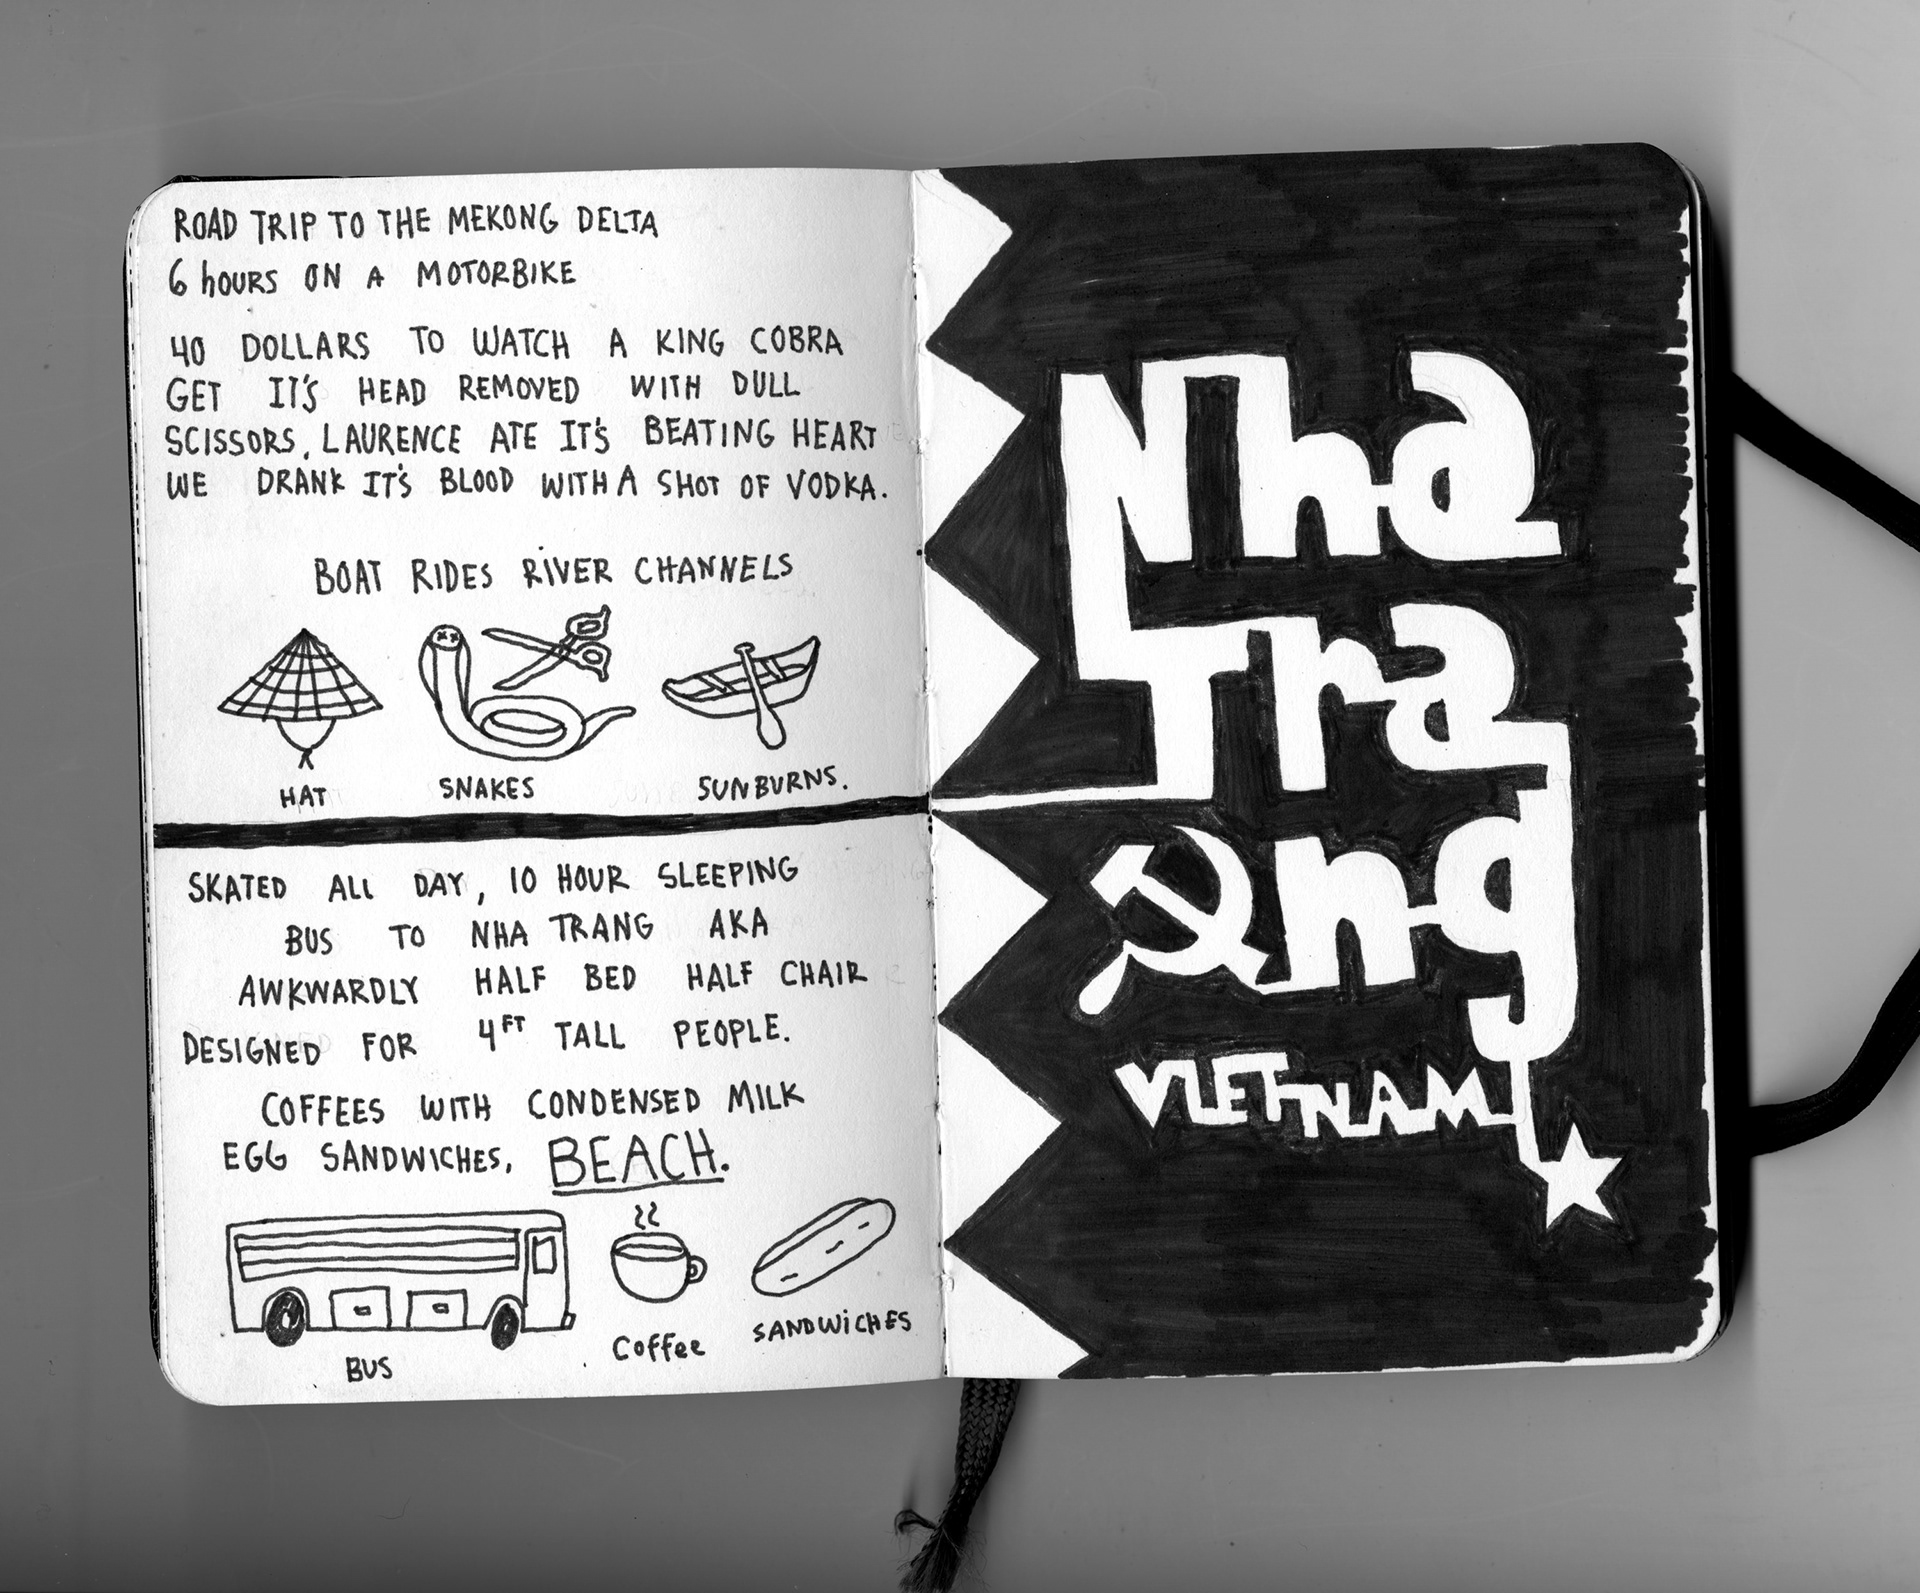 ROAD TRIP TO THE MEKONG DELTA
6 hOURS ON A MOTORBIKE
40 DOLLARS TO WATCH A KING COBRA
GET IT'S HEAD REMOVED WITH DULL
SCISSORS, LAURENCE ATE IT'S BEATING HEART
WE DRANK IT'S BLOOD WITH A SHOT OF VODKA.
BOAT RIDES RIVER CHANNELS
HAT
SNAKES
SUNBURNS.
SKATED ALL DAY, 10 HOUR SLEEPING
BUS TO NHA TRANG AKA
AWKWARDLY HALF BED HALF CHAIR
DESIGNED FOR 4FT TALL PEOPLE.
COFFEES WITH CONDENSED MILK
EGG SANDWICHES, BEACH.
BUS
Coffee
SANDWiCHES
Nha
Tra
ng
VIETNAM